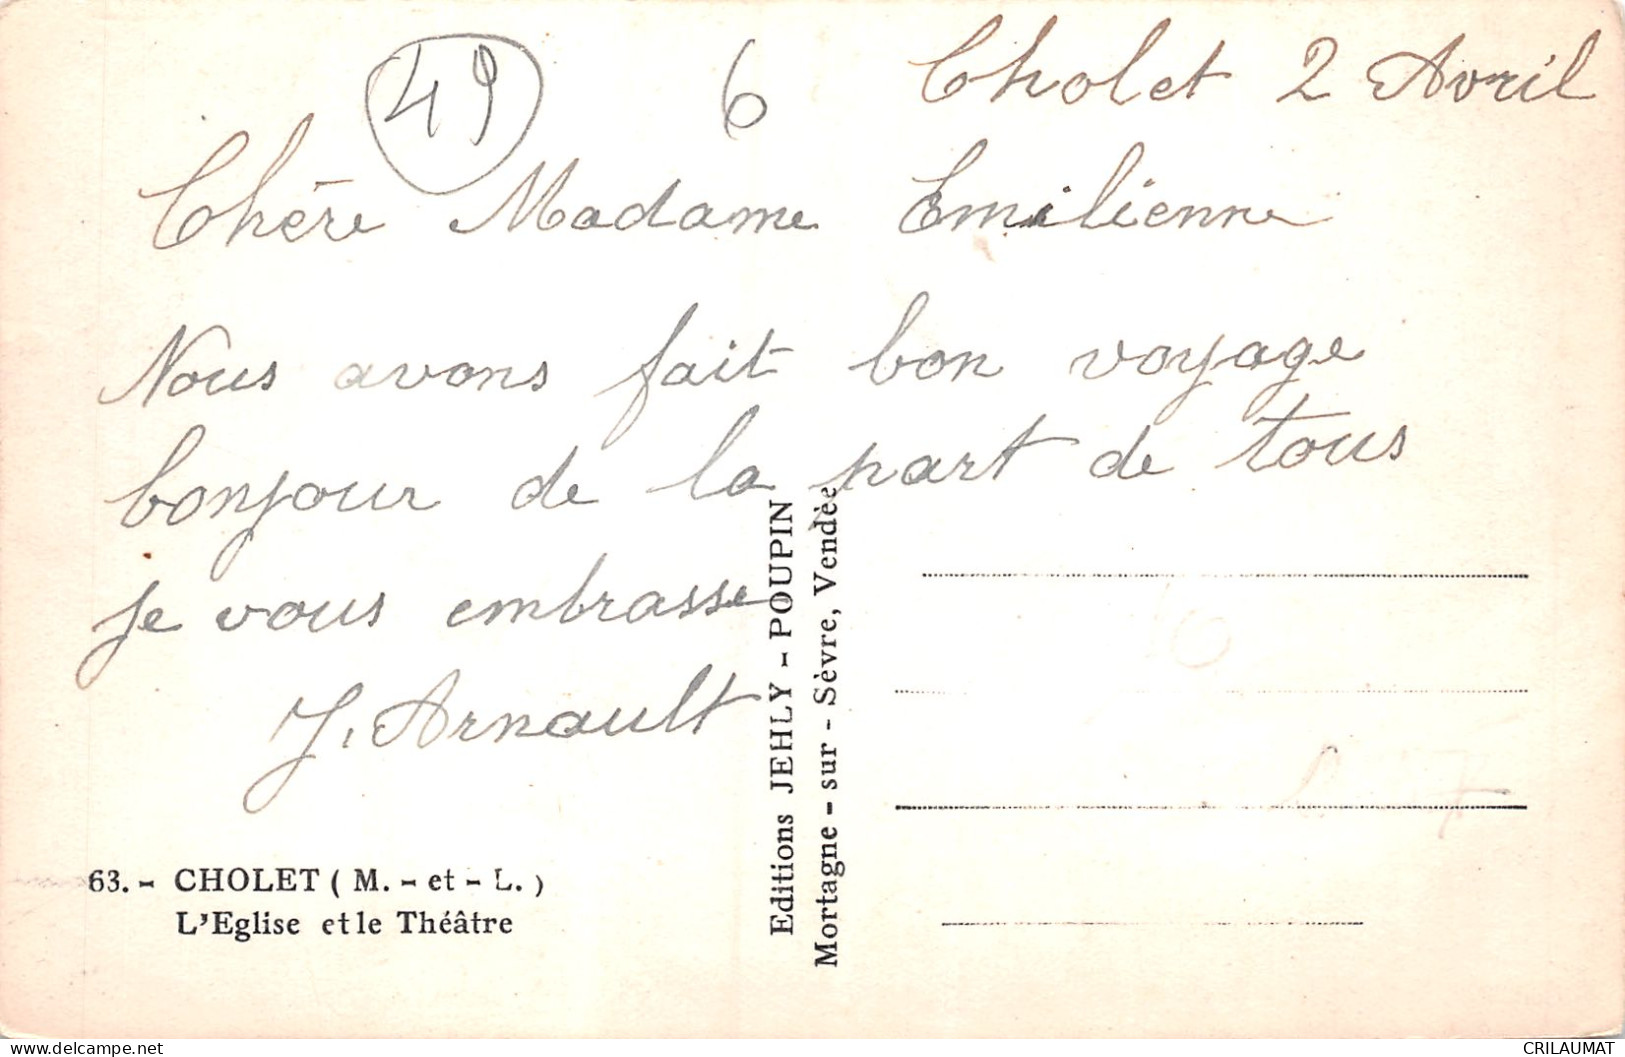 49 6 Cholet 2 Avril
Chère Madame Emilienne
Nous avons fait bon voyage
bonjour de la part de tous
je vous embrasse
J. Arnault
63. - CHOLET ( M. - et - L. )
L'Eglise et le Théâtre
Editions JEHLY - POUPIN
Mortagne - sur - Sèvre, Vendée
www.delcampe.net
CRILAUMAT